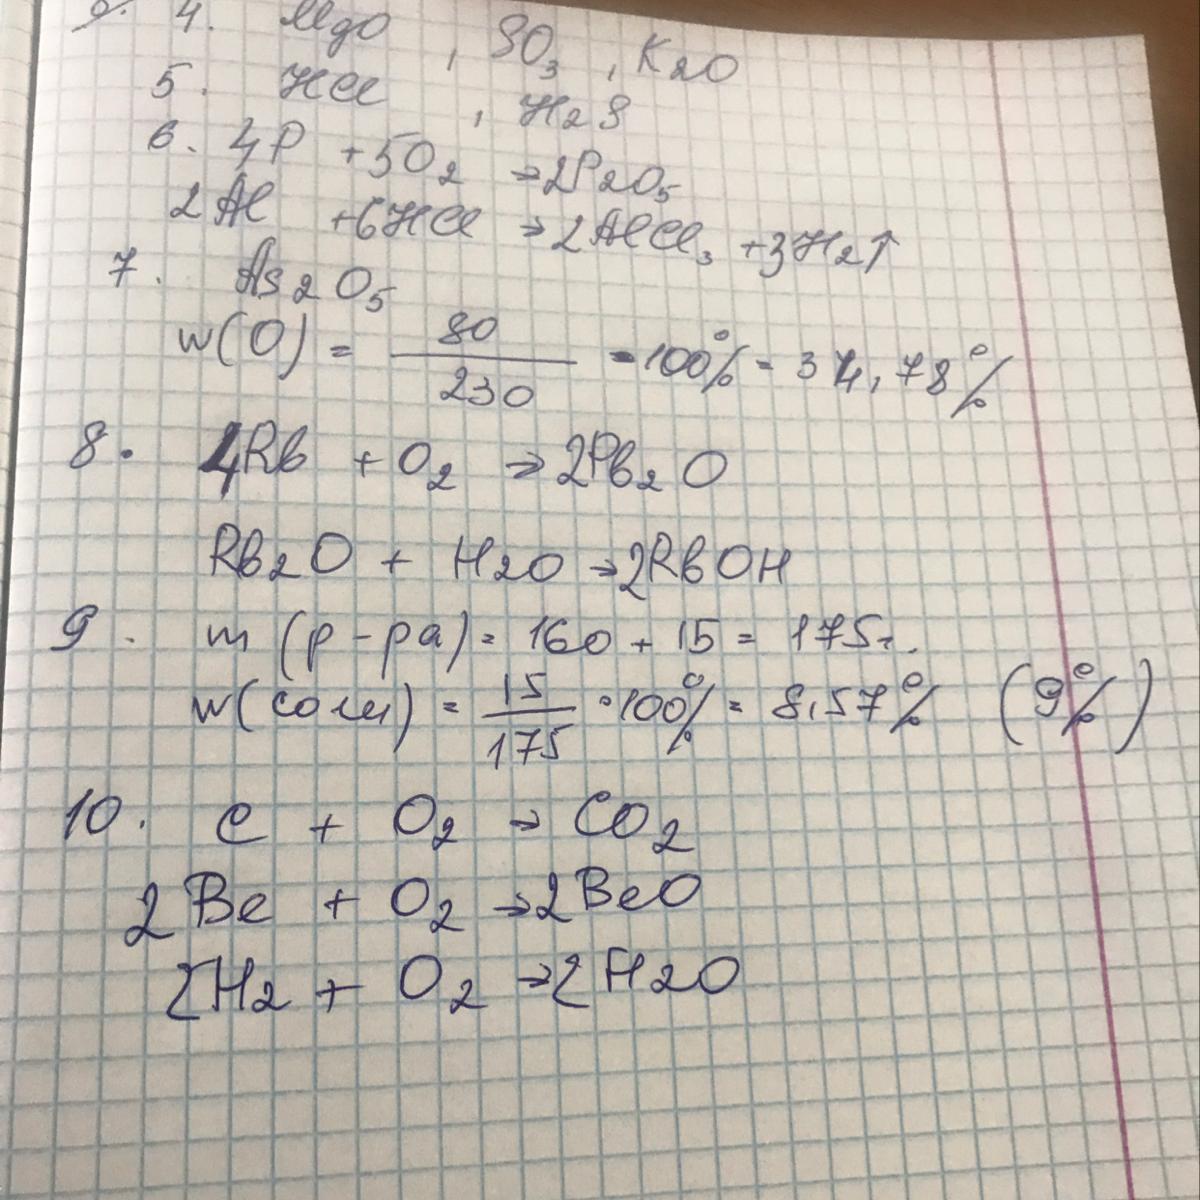 4. MgO , SO3 , K2O
5. HCl , H2S
6. 4P + 5O2 → 2P2O5
2Al + 6HCl → 2AlCl3 + 3H2↑
7. As2O5
w(O) = 80/230 · 100% = 34,78%
8. 4Rb + O2 → 2Rb2O
Rb2O + H2O → 2RbOH
9. m(р-ра) = 160 + 15 = 175г.
w(соли) = 15/175 · 100% = 8,57% (9%)
10. C + O2 → CO2
2Be + O2 → 2BeO
2H2 + O2 → 2H2O